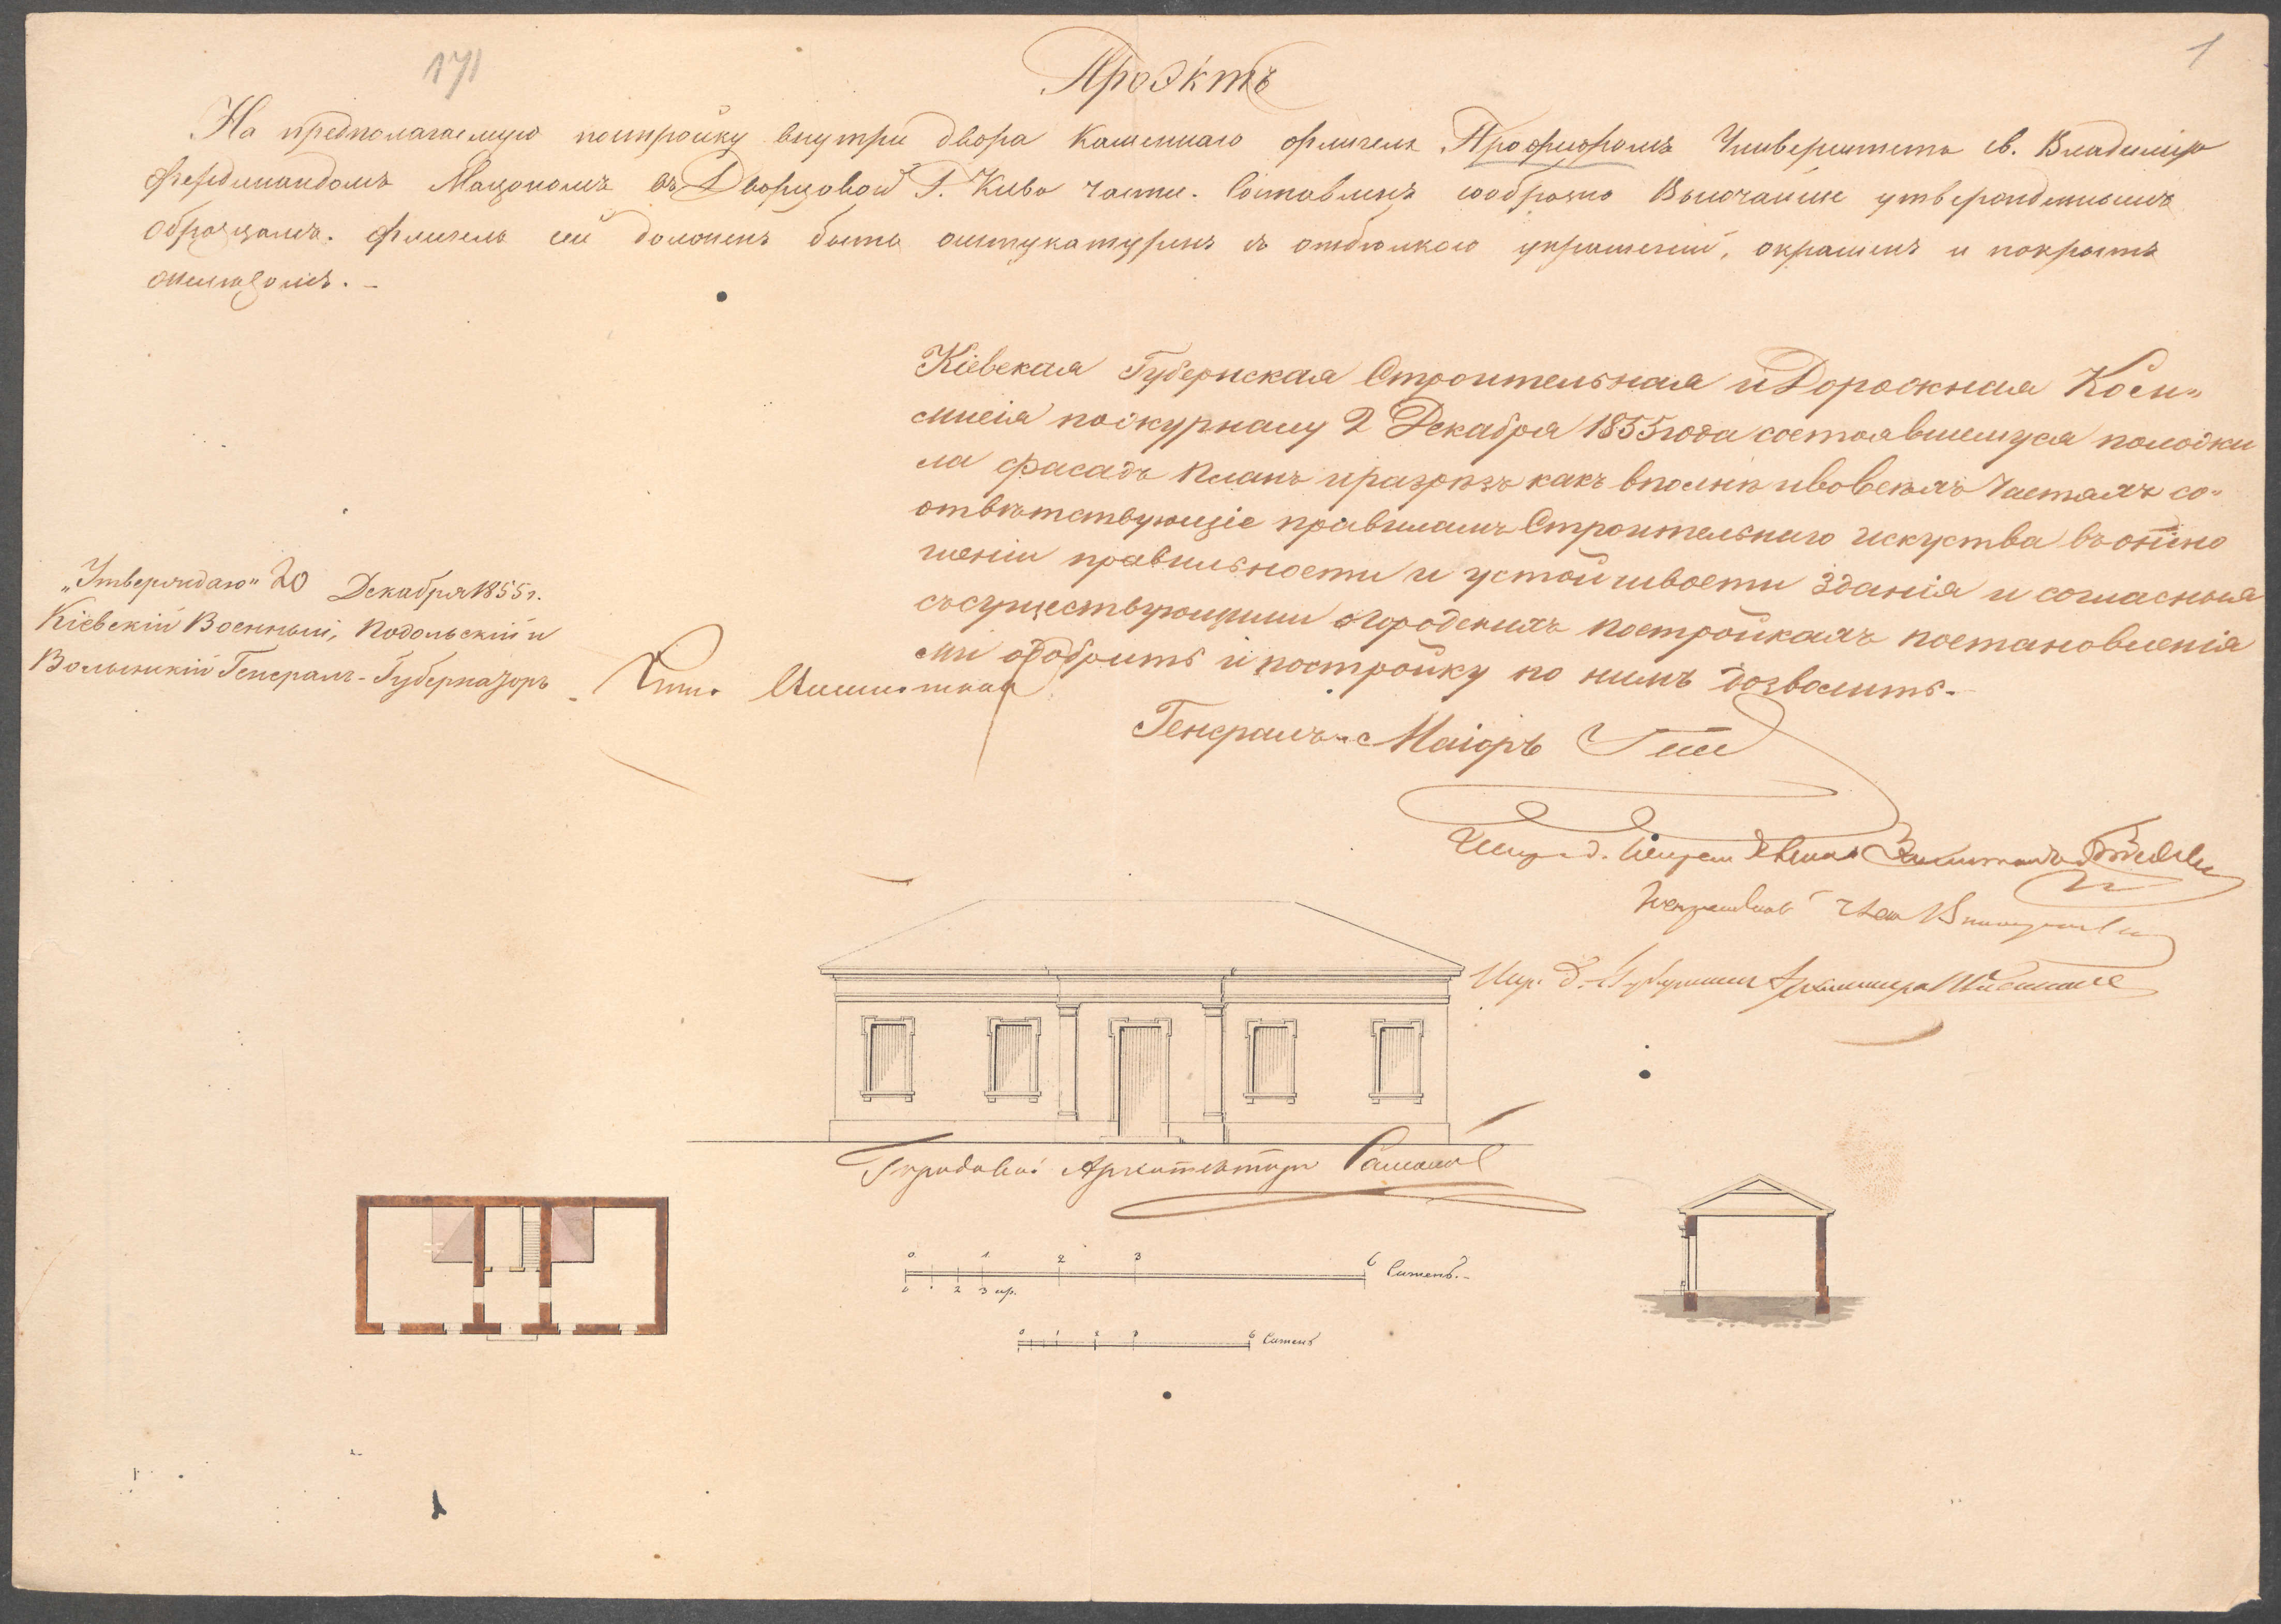 171
1
Проэктъ
На предполагаемую постройку внутри двора каменнаго флигеля Профессоромъ Университета св. Владиміра
Фердинандомъ Мацономъ въ Дворцовой Г. Кіева части. Составленъ сообразно Высочайше утвержденнымъ
образцамъ. Флигель сей долженъ быть оштукатуренъ съ отделкою украшеній, окрашенъ и покрытъ
железомъ. –
Кіевская Губернская Строительная и Дорожная Ком-
мисія по журналу 2 Декабря 1855 года состоявшемуся положи
ла фасадъ планъ и разрезъ какъ вполнѣ и во всѣхъ частяхъ со-
отвѣтствующіе правиламъ Строительнаго искуства въ отно
шеніи правильности и устойчивости зданія и согласныя
съ существующими о городскихъ постройкахъ постановленія
ми одобрить и постройку по нимъ дозволить.
„Утверждаю" 20 Декабря 1855 г.
Кіевскій Военный, Подольскій и
Волынскій Генералъ-Губернаторъ
Генералъ-Маіоръ
Городовой Архитекторъ
0 1 2 3 6 Сажень. –
2 3 ар.
0 1 2 3 6 Сажень